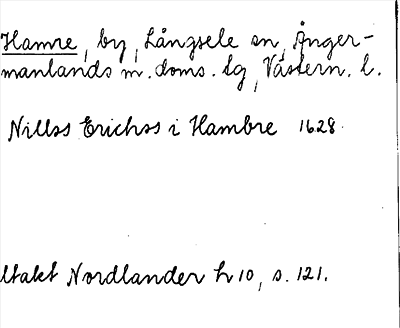 Hamre, by, Långsele sn, Ånger-
manlands m. doms. lg, Västern. l.
Nillss Erichss i Hambre 1628.
Utakt Nordlander h 10, s. 121.